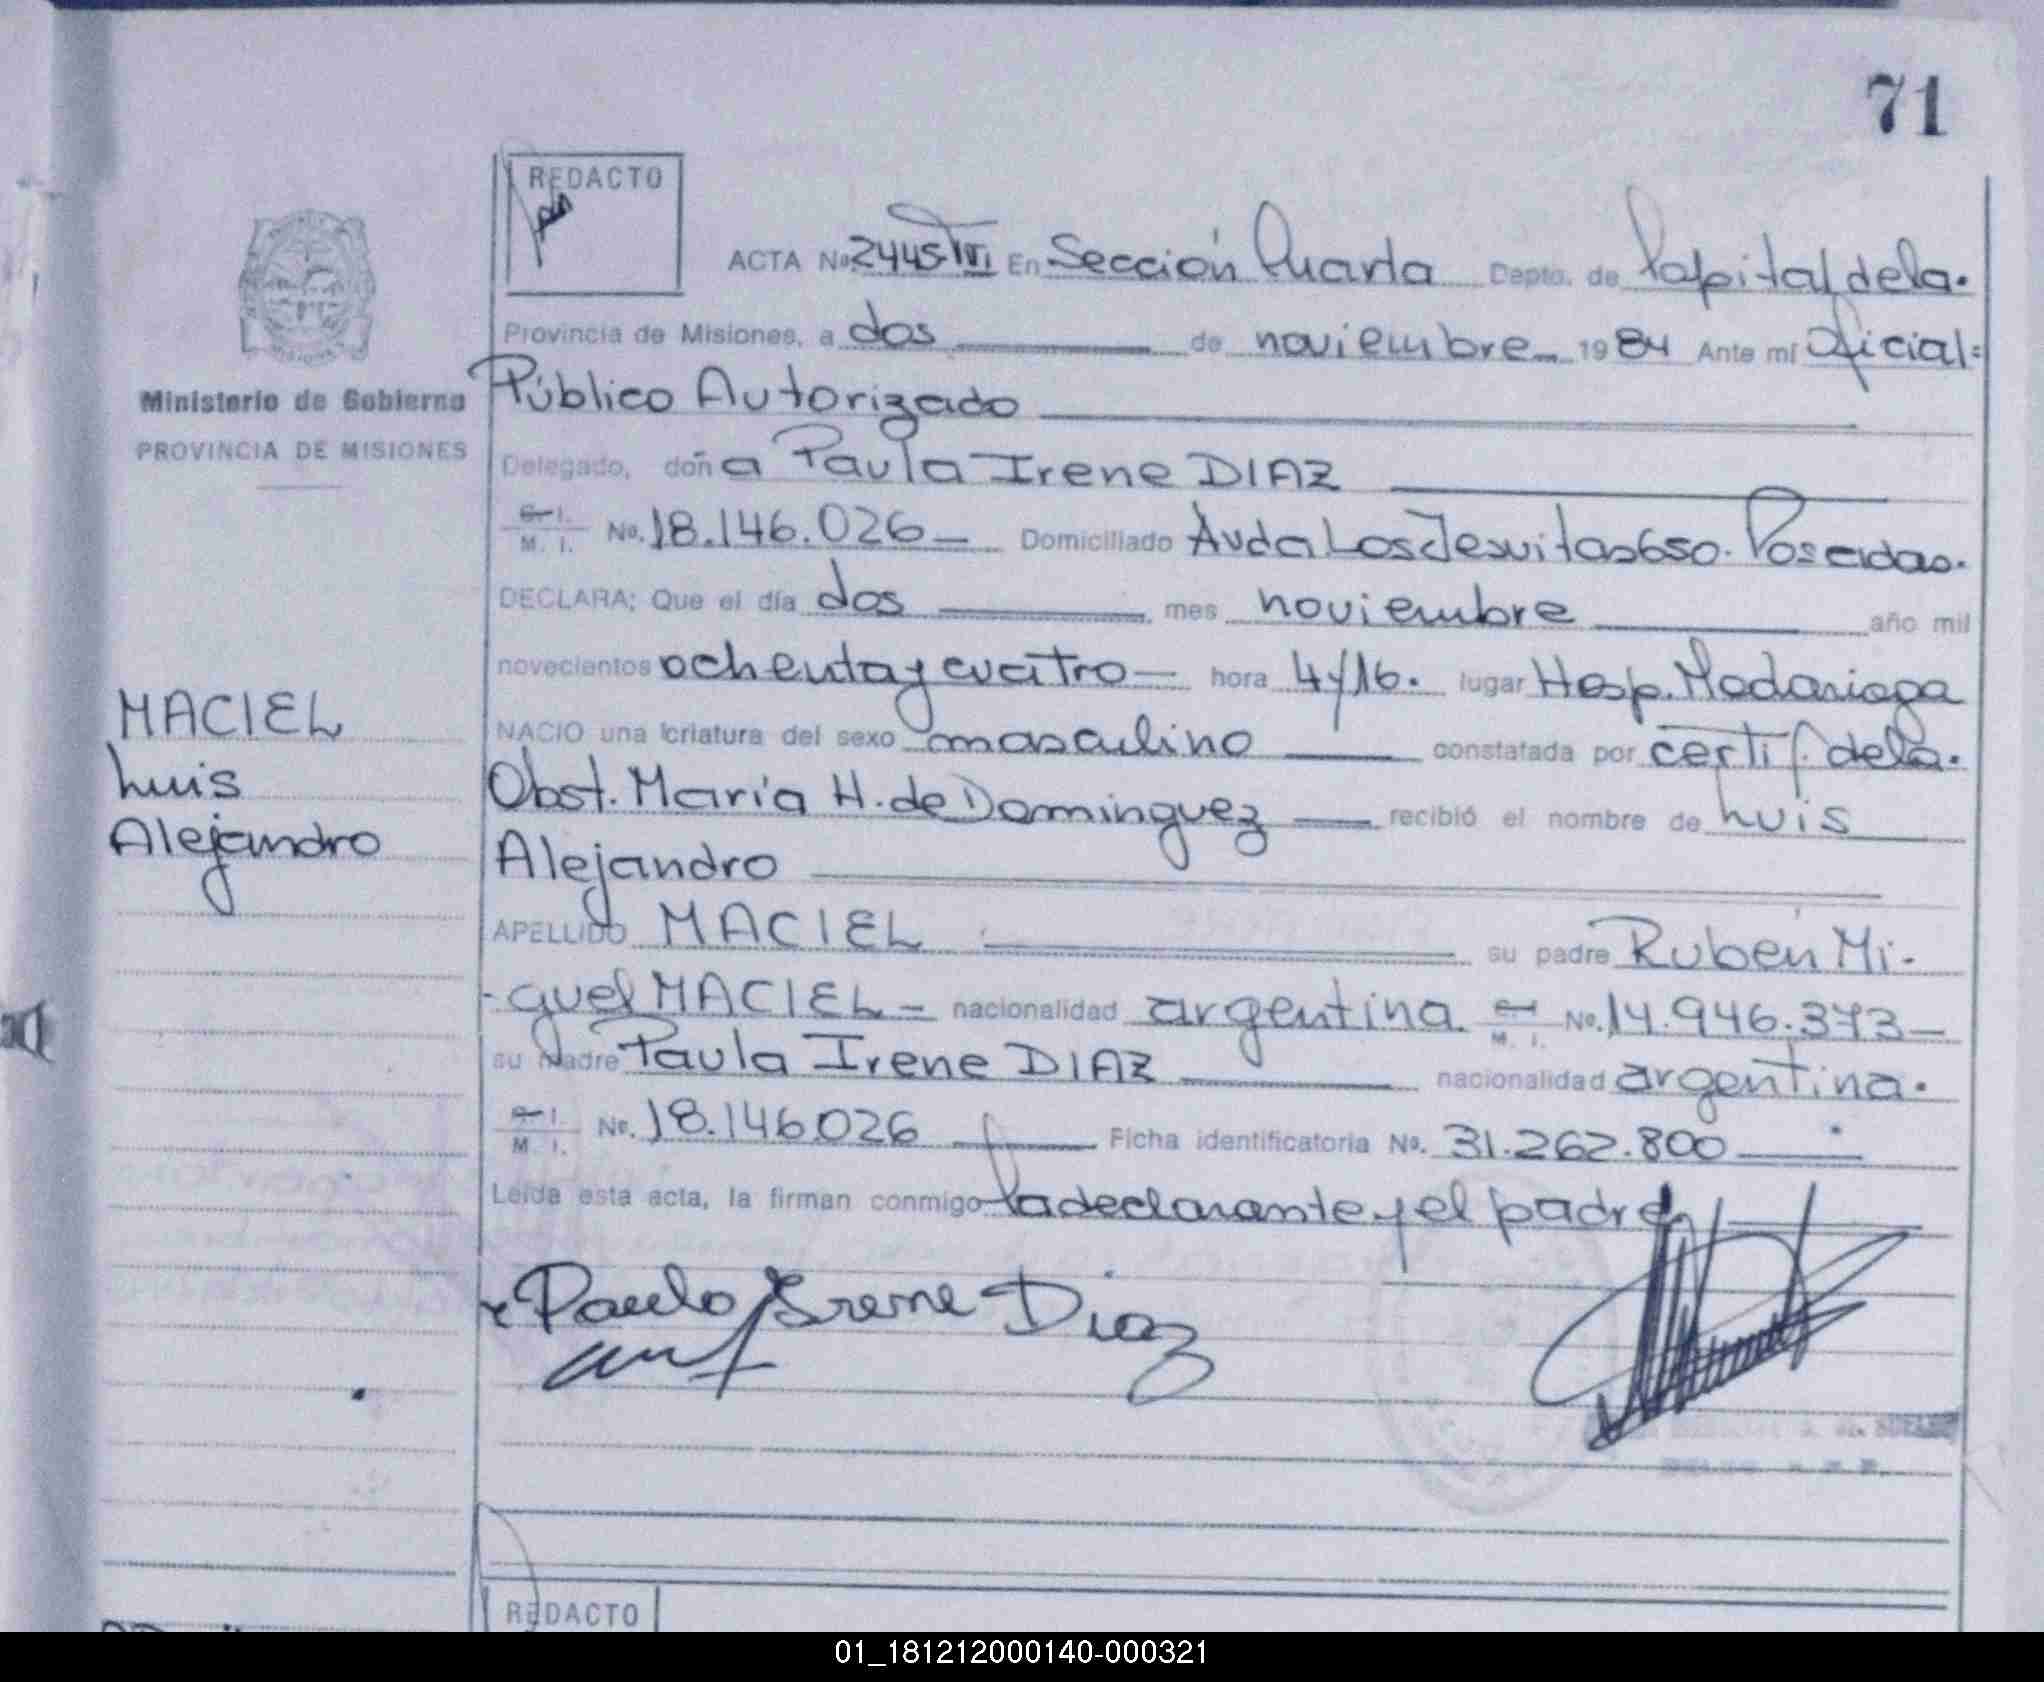 71
REDACTO
ACTA No 2445-VI En Sección Quarta Depto. de Capital de la.
Provincia de Misiones, a dos de noviembre 1984 Ante mí Oficial
Público Autorizado
Ministerio de Gobierno
PROVINCIA DE MISIONES
Delegado, doña Paula Irene DIAZ
C. I.
M. I. No. 18.146.026 Domiciliado Avda Los Jesuitas 650. Posadas.
DECLARA: Que el día dos mes noviembre año mil
novecientos ochenta y cuatro hora 4y16. lugar Hosp. Madariaga
NACIO una criatura del sexo masculino constatada por certif. de la.
Obst. María H. de Dominguez recibió el nombre de Luis
Alejandro
MACIEL
Luis
Alejandro
APELLIDO MACIEL su padre Rubén Mi-
-guel MACIEL - nacionalidad argentina C. I. M. I. No. 14.946.373
su madre Paula Irene DIAZ nacionalidad argentina.
C. I.
M. I. No. 18.146.026 Ficha identificatoria No. 31.262.800
Leída esta acta, la firman conmigo la declarante y el padre
Paula Irene Diaz
REDACTO
01_181212000140-000321